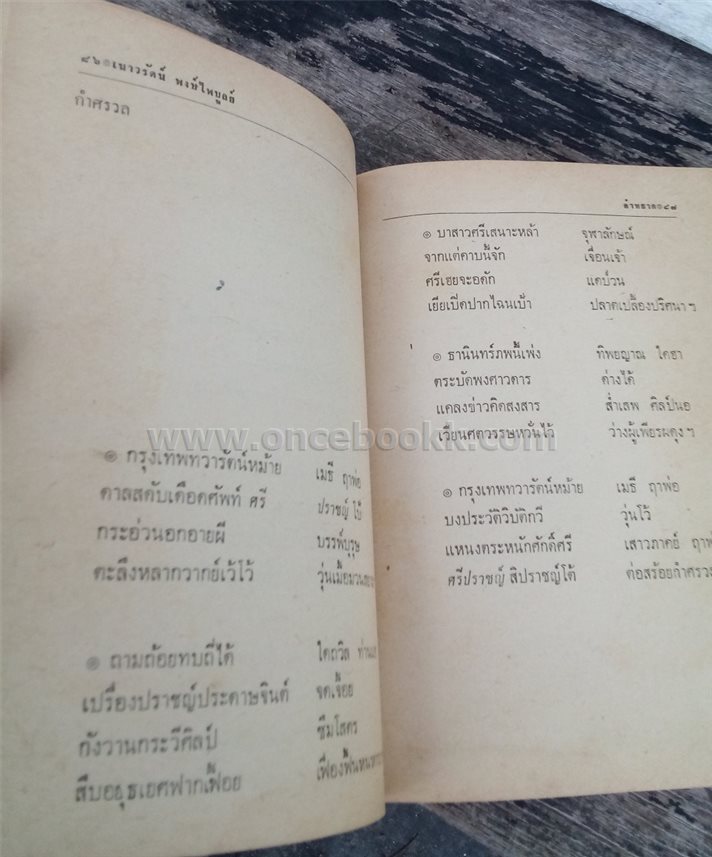 ๔๖๏เนาวรัตน์ พงษ์ไพบูลย์
กำศรวล
๏ กรุงเทพทวารัตน์หม้าย เมธี ฤาพ่อ
ดาลสดับเดือดศัพท์ ศรี ปราชญ์ โบ้
กระอ่วนอกอายผี บรรพ์บุรุษ
ตะลึงหลากวากย์เว้ไว้ วุ่นเมื้อ
๏ ถามถ้อยทบถี่ได้ ใดถวิล
เปรื่องปราชญ์ประดาษจินต์ จดเจื้อย
กังวานกระวีศิลป์ ซึมโสตร
สืบอยุธเยศฟากเฟื้อย เฟื่องฟื้น
ลำหลาก๏๔๗
๏ บาสาวศรีเสนาะหล้า จุฬาลักษณ์
จากแต่คาบนั้นจัก เจื่อนเจ้า
ศรีเฮยจะอดัก แดบ้วน
เยียเบิดปากไฉนเบ้า ปลาดเปลื้องปริศนา ฯ
๏ ธานินทร์ภพนี้เพ่ง ทิพยญาณ ใดฮา
ตระบัดพงศาวดาร ด่างได้
แคลงข่าวคิดสงสาร ส่ำเสพ ศิลป์นอ
เวียนศตวรรษหวั่นไว้ ว่างผู้เพียรผดุง ฯ
๏ กรุงเทพทวารัตน์หม้าย เมธี ฤาพ่อ
บงประวัติวิบัติกวี วุ่นโว้
แหนงตระหนักศักดิ์ศรี เสาวภาคย์
ศรีปราชญ์ สิปราชญ์โต้ ต่อสร้อยกำศรวล
www.oncebookk.com